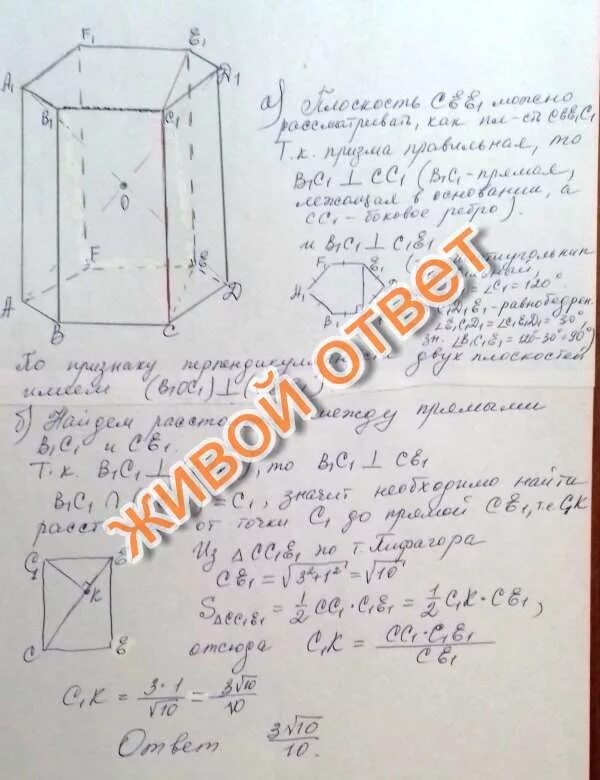 F₁
E₁
A₁
D₁
B₁
C₁
O
F
E
A
D
B
C
а) Плоскость CEE₁ можно
рассматривать, как пл-сть
Т.к. призма правильная, то
B₁C₁ ⊥ CC₁ (B₁C₁ - прямая,
лежащая в основании, а
CC₁ - боковое ребро)
и B₁C₁ ⊥ C₁E₁
F₁ E₁
A₁
B₁
∠C₁ = 120°
C₁D₁E₁ - равнобедрен.
∠E₁C₁D₁ = ∠C₁E₁D₁ = 30°,
зн. ∠B₁C₁E₁ = 120°-30°=90°)
По признаку двух плоскостей
имеем (B₁OC₁) ⊥
б) Найдем между прямыми
B₁C₁ и CE₁
Т.к. B₁C₁ ⊥ , то B₁C₁ ⊥ CE₁
B₁C₁ ∩ = C₁, значит необходимо найти
от точки C₁ до прямой CE₁, т.е. C₁K
C₁
K
C E
Из △CC₁E₁ по т. Пифагора
CE₁ = √3²+1² = √10
S△CC₁E₁ = 1/2 CC₁·C₁E₁ = 1/2 C₁K·CE₁,
отсюда C₁K = CC₁·C₁E₁/CE₁
C₁K = 3·1/√10 = 3√10/10
Ответ 3√10/10.
ЖИВОЙ ОТВЕТ